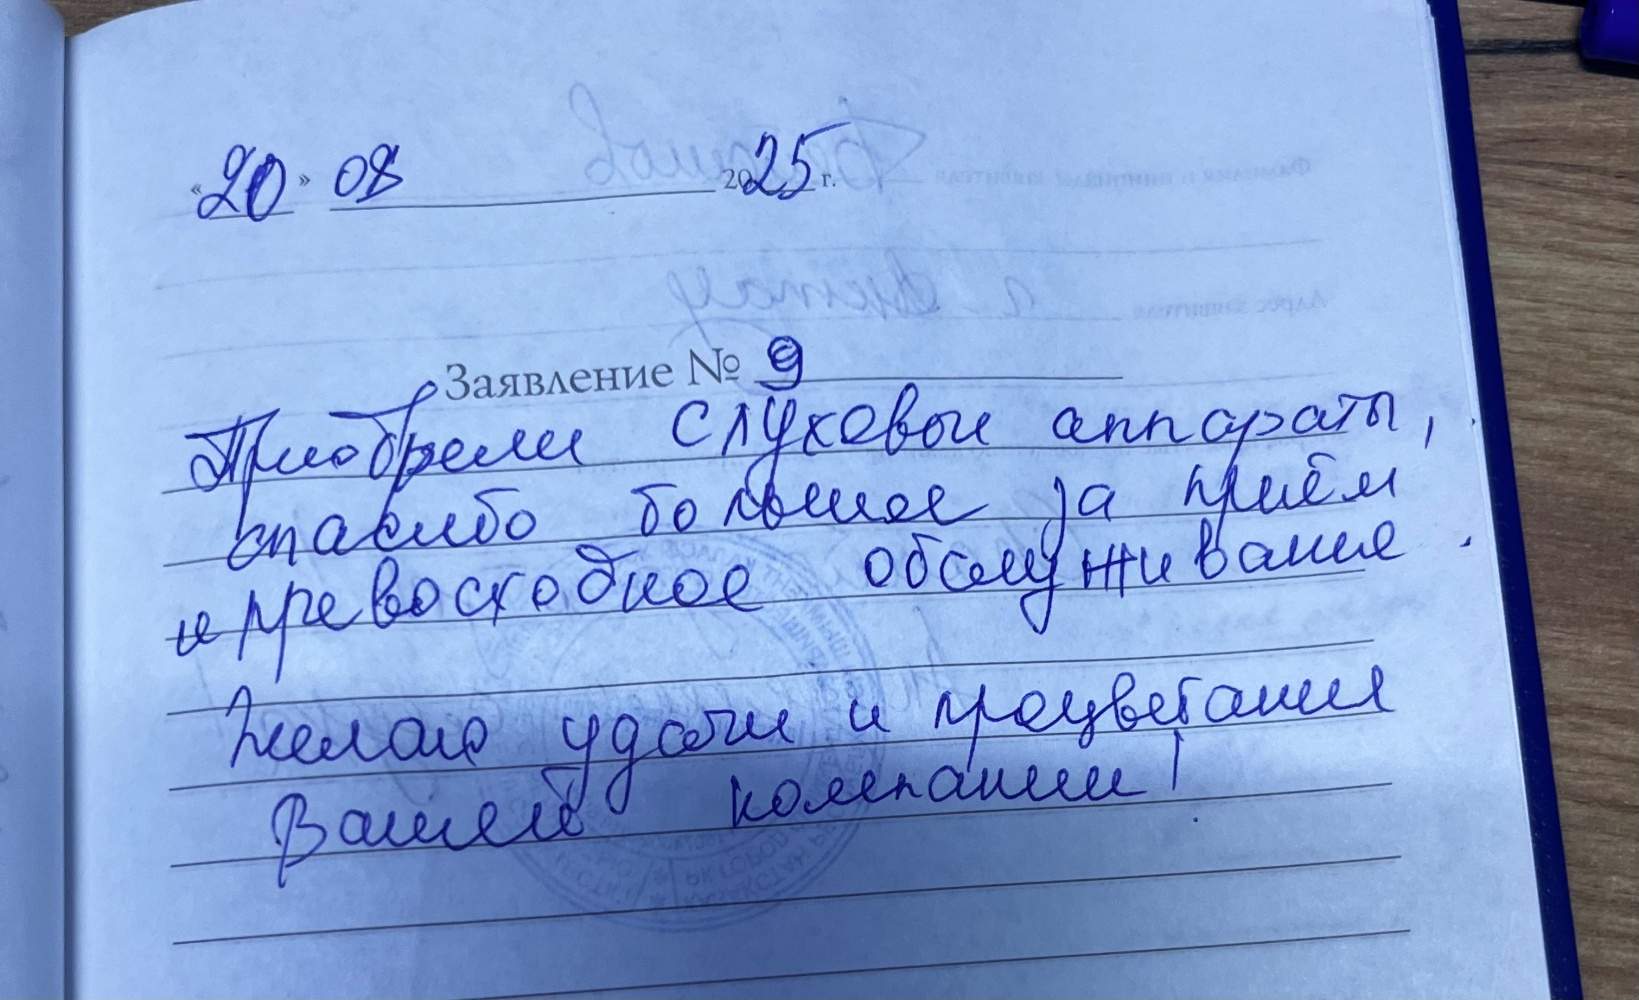 «20» 08 2025 г.
Заявление № 9
Приобрели слуховые аппараты,
спасибо большое за приём
и превосходное обслуживание.
Желаю удачи и процветания
Вашей компании!